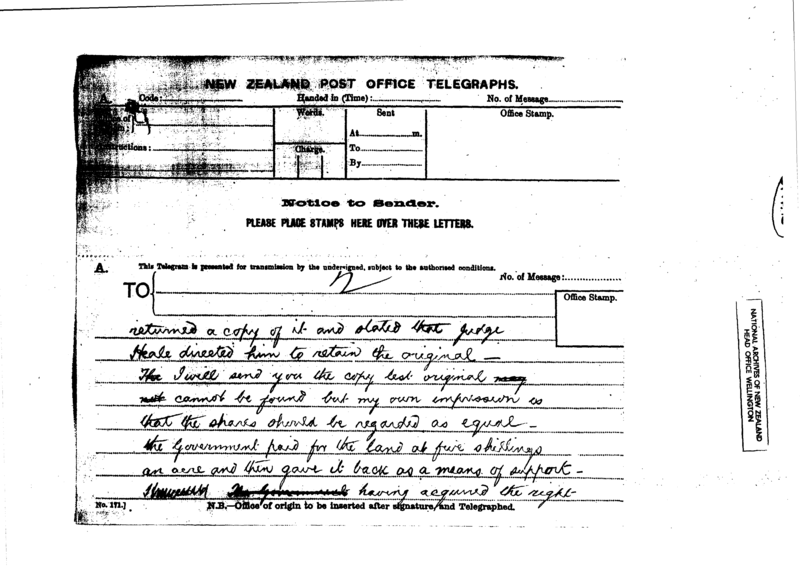 NEW ZEALAND POST OFFICE TELEGRAPHS.
A. Code: Handed in (Time): No. of Message
Words. Sent Office Stamp.
At m.
Charge. To
By
Notice to Sender.
PLEASE PLACE STAMPS HERE OVER THESE LETTERS.
A. This Telegram is presented for transmission by the undersigned, subject to the authorised conditions.
No. of Message:
2
TO
Office Stamp.
returned a copy of it and stated that Judge
Heale directed him to retain the original —
The I will send you the copy lest original may
not cannot be found but my own impression is
that the shares should be regarded as equal —
the Government paid for the land at five shillings
an acre and then gave it back as a means of support —
The Government having acquired the right
No. 171.] N.B.—Office of origin to be inserted after signature, and Telegraphed.
NATIONAL ARCHIVES OF NEW ZEALAND
HEAD OFFICE WELLINGTON